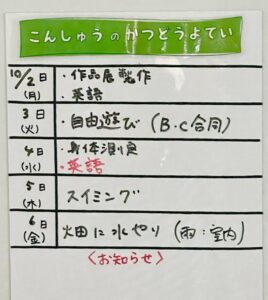 こんしゅうのかつどうよてい
10/2日(月)
・作品展製作
・英語
3日(火)
・自由遊び (B・C合同)
4日(水)
・身体測定
・英語
5日(木)
スイミング
6日(金)
畑に水やり (雨:室内)
〈お知らせ〉